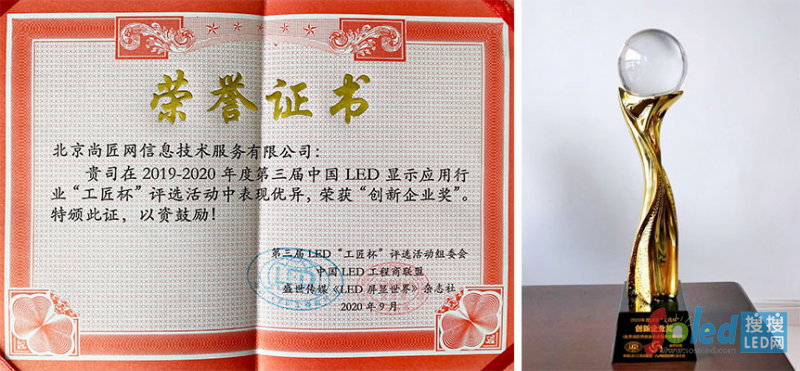 荣誉证书
北京尚匠网信息技术服务有限公司：
贵司在 2019-2020 年度第三届中国 LED 显示应用行
业“工匠杯”评选活动中表现优异，荣获“创新企业奖”。
特颁此证，以资鼓励！
第三届 LED“工匠杯”评选活动组委会
中国 LED 工程商联盟
盛世传媒《LED 屏显世界》杂志社
2020 年 9 月
创新企业奖
Soled 搜搜
LED网
www.sosoled.com